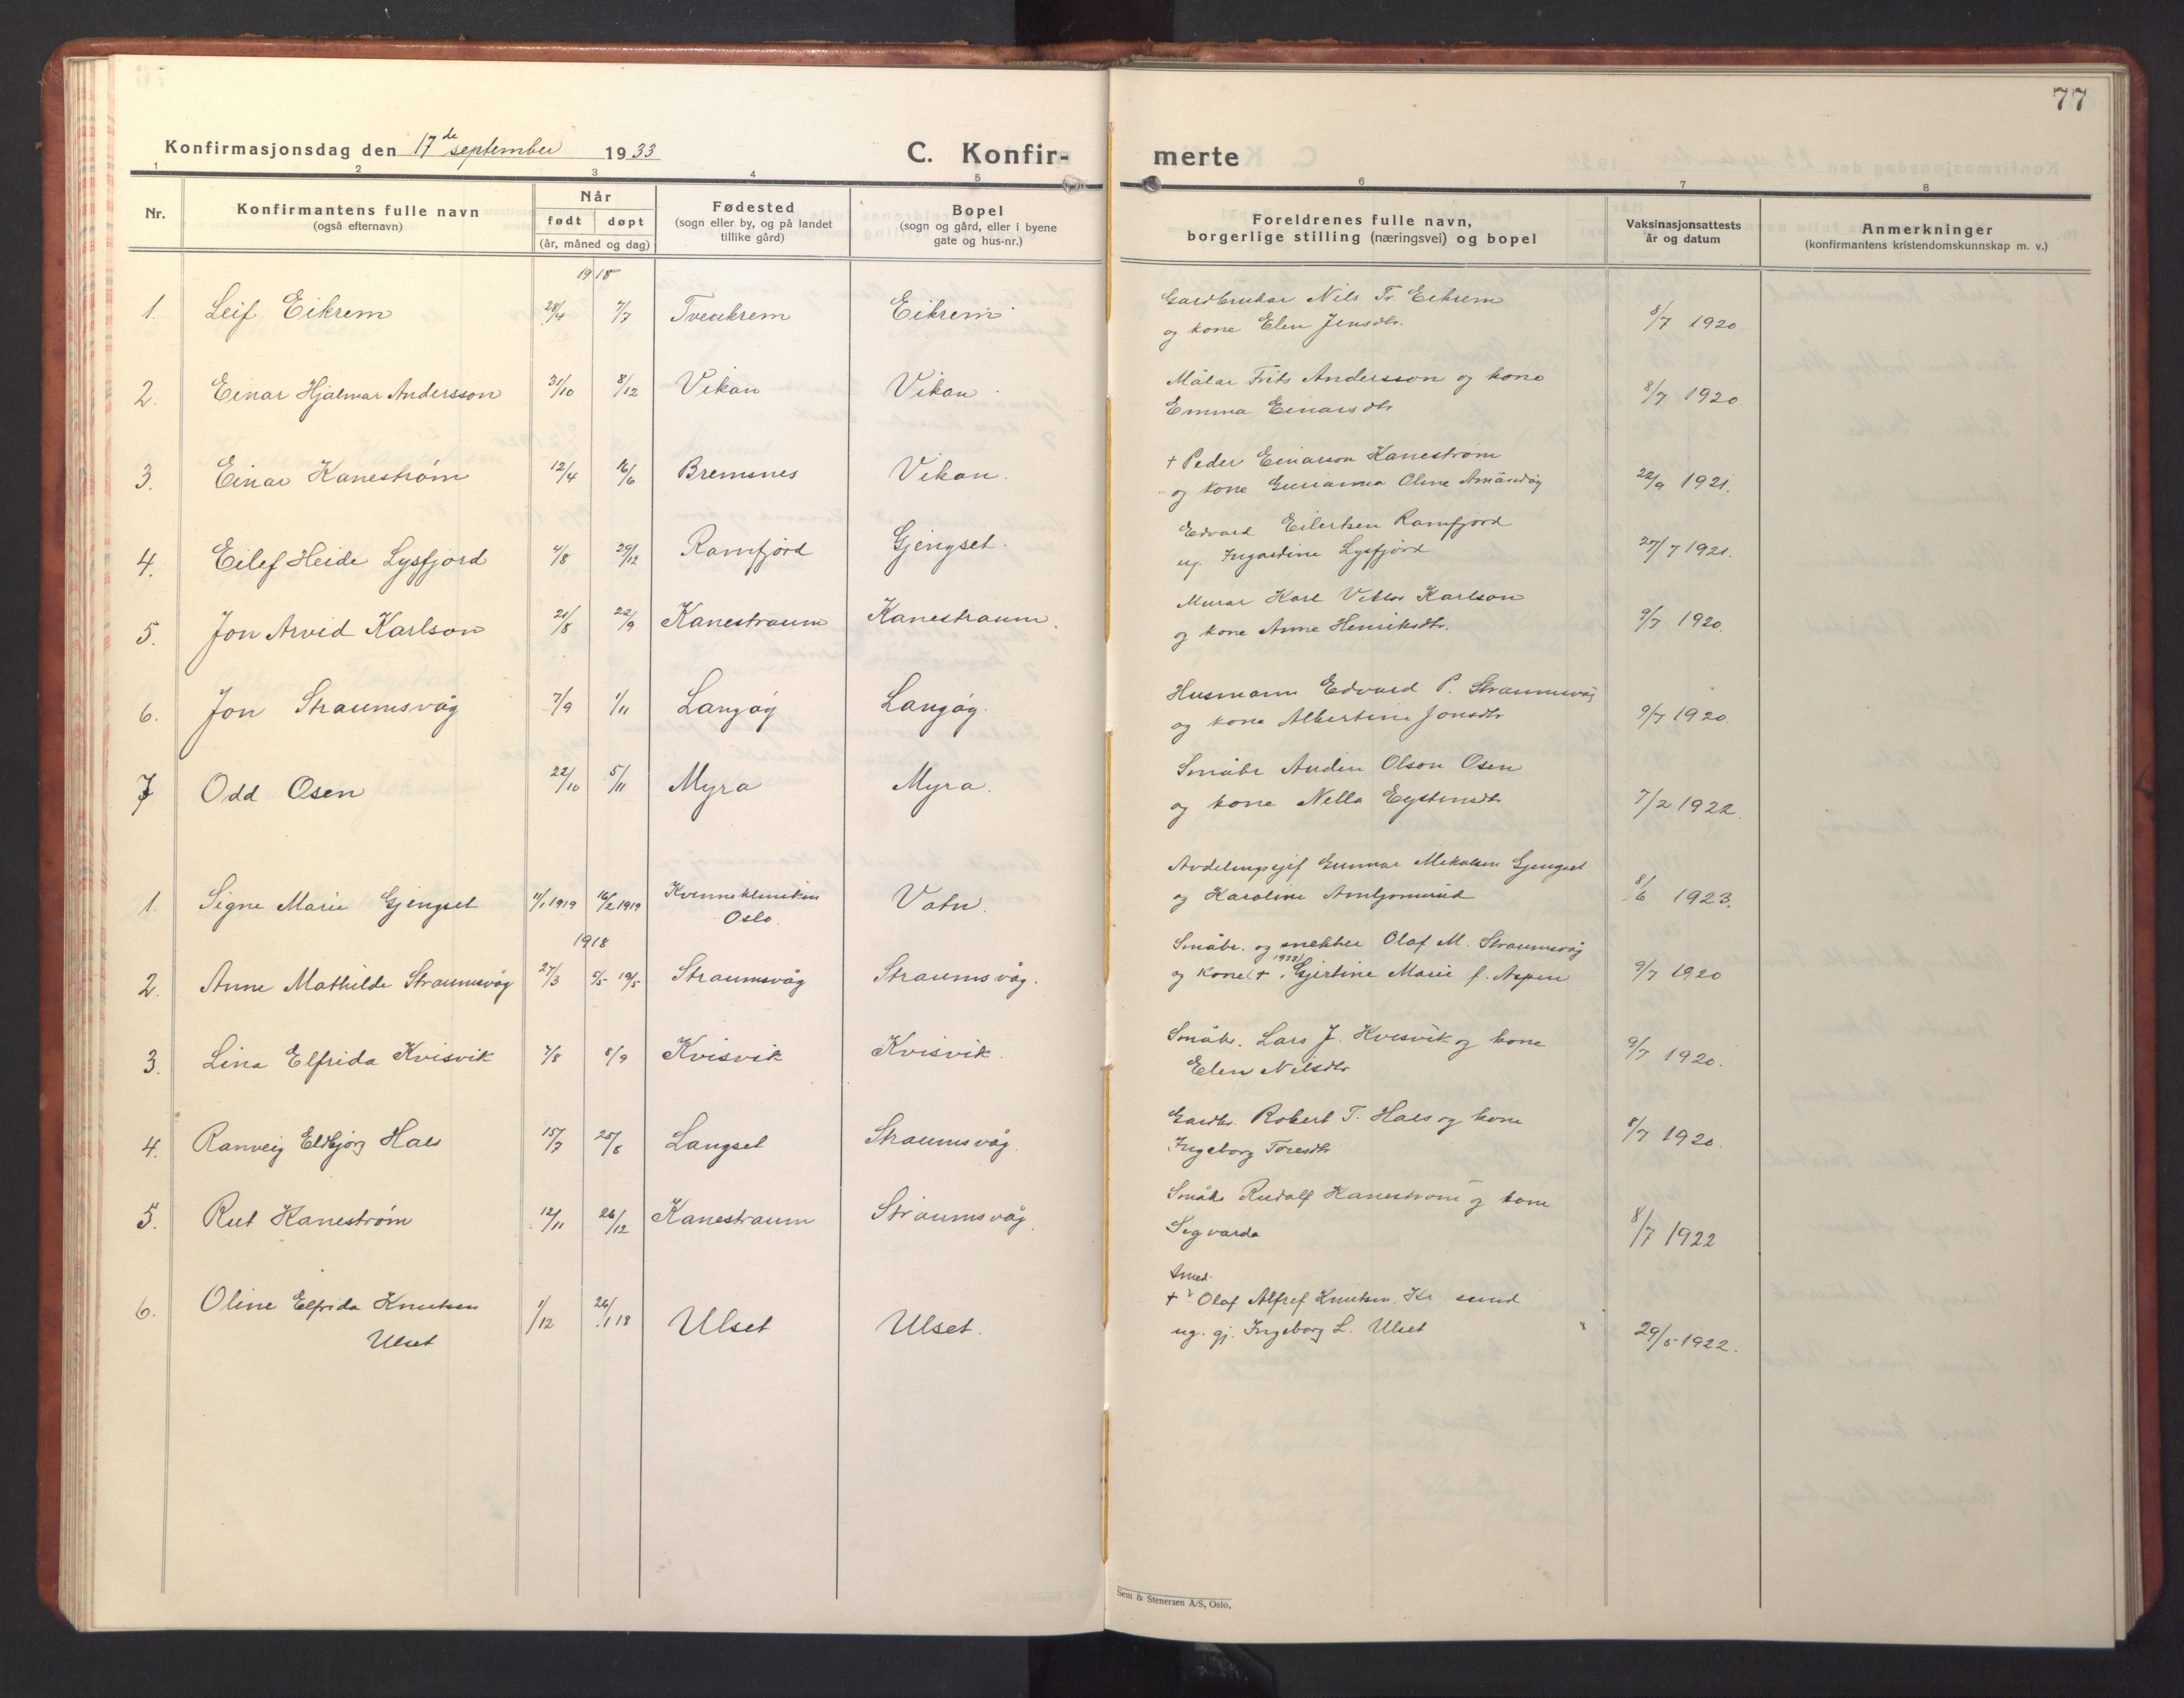 77
Konfirmasjonsdag den 17de september 1933
C. Konfir- merte
1 2 3 4 5 6 7 8
Nr.
Konfirmantens fulle navn
(også efternavn)
Når
født døpt
(år, måned og dag)
Fødested
(sogn eller by, og på landet
tillike gård)
Bopel
(sogn og gård, eller i byene
gate og hus-nr.)
Foreldrenes fulle navn,
borgerlige stilling (næringsvei) og bopel
Vaksinasjonsattests
år og datum
Anmerkninger
(konfirmantens kristendomskunnskap m. v.)
1918
1. Leif Eikrem 28/4 7/7 Tveeikrem Eikrem Gardbrukar Nils Tr. Eikrem
og kone Elen Jensdtr. 8/7 1920
2. Einar Hjalmar Andersson 31/10 8/12 Vikan Vikan Målar Frits Andersson og kone
Emma Einarsdtr 8/7 1920
3. Einar Kanestrøm 12/4 16/6 Bremsnes Vikan. + Peder Einarson Kanestrøm
og kone Gurianna Oline 22/9 1921.
4. Eilef Heide Lysfjord 4/8 29/12 Ramfjord Gjengset. Edvard Eilertsen Ramfjord
ug. Ingardine Lysfjord 27/7 1921.
5. Jon Arvid Karlson 21/8 22/9 Kanestraum Kanestraum. Murar Karl Karlson
og kone Anne Henriksdtr. 9/7 1920.
6. Jon Straumsvåg 7/9 1/11 Langøy Langøy. Husmann Edvard P. Straumsvåg
og kone Albertine Jonsdtr 9/7 1920.
7 Odd Osen 22/10 5/11 Myra Myra. Småbr Olson Osen
og kone Nella Eystensdtr 7/2 1922.
1 Signe Marie Gjengset 11/1 1919 16/2 1919 Kvinneklinikken
Oslo. Vatn. Avdelingssjef Gunnar Mekalsen Gjengset
og Karoline 8/6 1923.
1918
2. Anne Mathilde Straumsvåg 27/3 5/5- 19/5 Straumsvåg Straumsvåg. Småbr. og snekker Olaf M. Straumsvåg
og kone (+ 1933) Gjertine Marie f. Aspen 9/7 1920
3. Lina Elfrida Kvisvik 7/8 8/9 Kvisvik Kvisvik. Småbr. Lars J. Kvisvik og kone
Elen Nilsdtr 9/7 1920.
4. Ranveig Eldbjørg Hals 15/7 25/8 Langset Straumsvåg. Gardbr. Robert T. Hals og kone
Ingeborg Toresdtr 8/7 1920.
5. Rut Kanestrøm 12/11 26/12 Kanestraum Straumsvåg. Småbr Rudolf Kanestrøm og kone
Segvarda 8/7 1922
6. Oline Elfrida Knutsen
Ulset 1/12 26/1 18 Ulset Ulset. Smed
+ Olaf Alfref Knutsen Kr sund
ug. gj. Ingeborg L. Ulset 29/5 1922.
Sem & Stenersen A/S, Oslo.